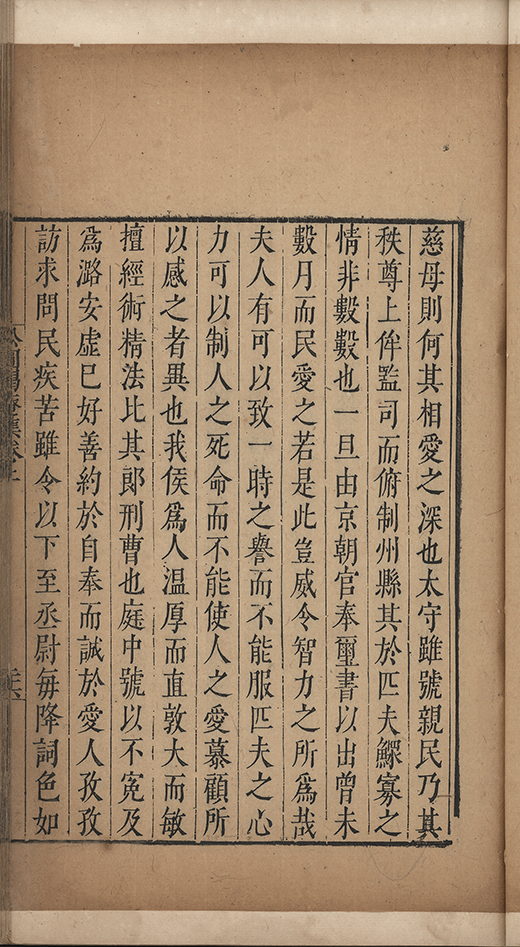 慈母則何其相愛之深也太守雖號親民乃其
秩尊上侔監司而俯制州縣其於匹夫鰥寡之
情非數數也一旦由京朝官奉璽書以出曾未
數月而民愛之若是此豈威令智力之所爲哉
夫人有可以致一時之譽而不能服匹夫之心
力可以制人之死命而不能使人之愛慕顧所
以感之者異也我侯爲人溫厚而直敦大而敏
擅經術精法比其郎刑曹也庭中號以不冤及
爲潞安虛巳好善約於自奉而誠於愛人孜孜
訪求問民疾苦雖令以下至丞尉每降詞色如